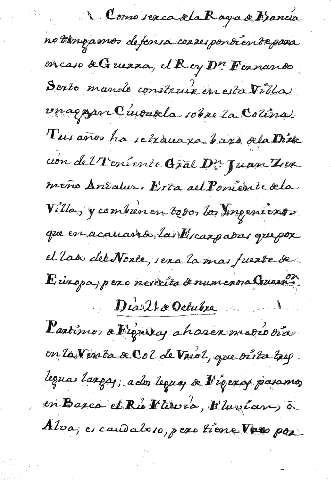 Como serca de la Raya de Francia
no tengamos defensa correspondiente para
en caso de Guerra, el Rey Dn. Fernando
Sexto mando construir en esta Villa
una gran Ciudadela sobre la Colina
Tres años ha se travaxa baxo de la Direc
cion del Teniente Gral Dn. Juan Zer
meño Andaluz. Esta al Poniente de la
Villa, y combienen todos los Yngenieros
que en acavando las Escarpadas que por
el lado del Norte, sera la mas fuerte de
Europa, pero necesita de numerosa Guaron.
Dia 21 de Octubre
Partimos de Figueras a hazer medio dia
en la Venta de Col de Uriol, que dista tres
leguas largas; a dos leguas de Figeras pasamos
en Barca el Rio Fluvia, Fluvian, ò
Alva, es caudaloso, pero tiene Vado por